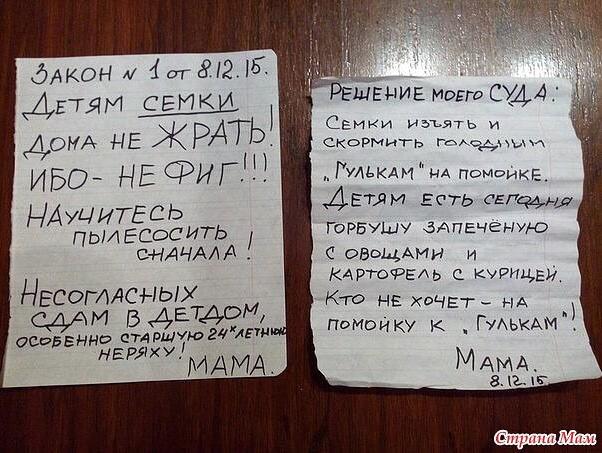 ЗАКОН N 1 от 8.12.15.
ДЕТЯМ СЕМКИ
ДОМА НЕ ЖРАТЬ!
ИБО - НЕ ФИГ!!!
НАУЧИТЕСЬ
ПЫЛЕСОСИТЬ
СНАЧАЛА!
НЕСОГЛАСНЫХ
СДАМ В ДЕТДОМ,
ОСОБЕННО СТАРШУЮ 24х ЛЕТНЮЮ
НЕРЯХУ!
МАМА.
РЕШЕНИЕ МОЕГО СУДА:
СЕМКИ ИЗЪЯТЬ И
СКОРМИТЬ ГОЛОДНЫМ
„ГУЛЬКАМ" НА ПОМОЙКЕ.
ДЕТЯМ ЕСТЬ СЕГОДНЯ
ГОРБУШУ ЗАПЕЧЁНУЮ
С ОВОЩАМИ И
КАРТОФЕЛЬ С КУРИЦЕЙ.
КТО НЕ ХОЧЕТ - НА
ПОМОЙКУ К „ГУЛЬКАМ"!
МАМА.
8.12.15.
Страна Мам